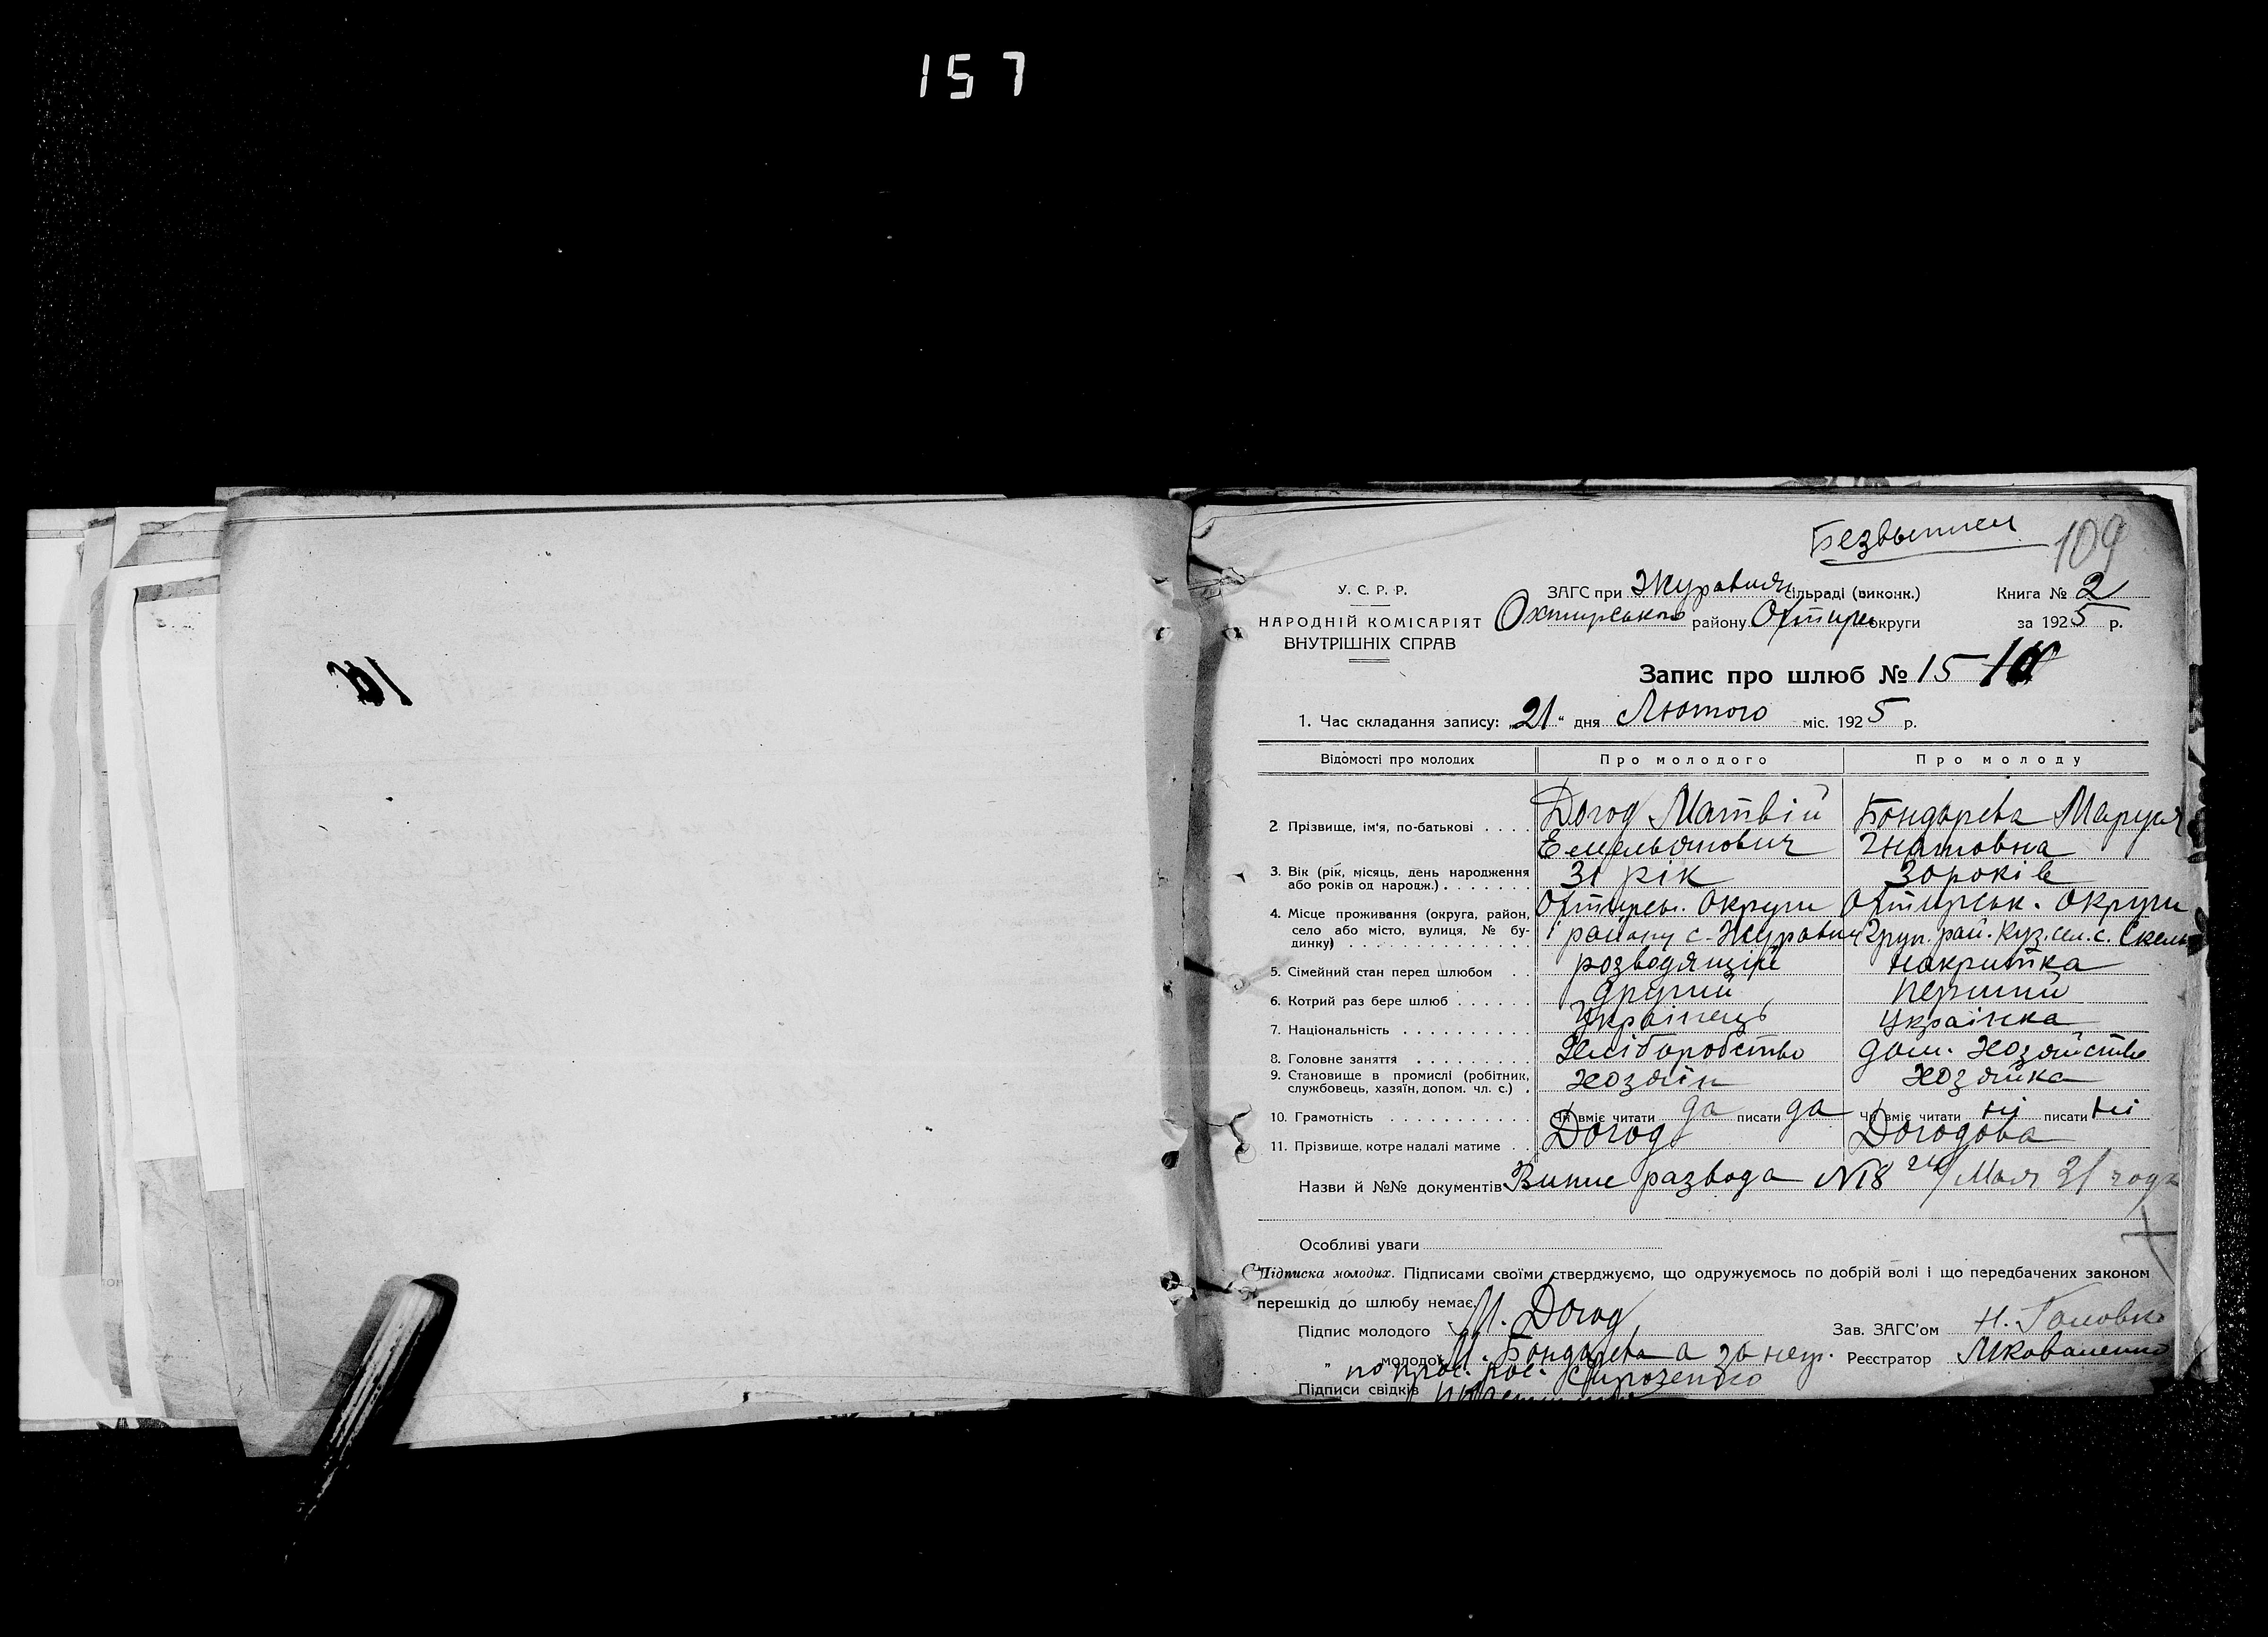 157
Безвыписи
109
У. С. Р. Р.
НАРОДНІЙ КОМІСАРІЯТ
ВНУТРІШНІХ СПРАВ
ЗАГС при Журавин сільраді (виконк.)
Охтирського району Охтирс округи
Книга № 2
за 1925 р.
Запис про шлюб № 15
1. Час складання запису: „21“ дня Лютого міс. 1925 р.
Відомості про молодих Про молодого Про молоду
2 Прізвище, ім'я, по-батькові . . . . Догод Матвій Бондарева Маруся
Емельянович Гнатовна
3. Вік (рік, місяць, день народження або років од народж.) . . . . . . . 31 рік 30 років
4. Місце проживання (округа, район, село або місто, вулиця, № будинку) . . . . . . . . . . . . . . Охтирсь. Округи Охтирськ. Округи
району с. Журавин Груп. рай. Куз. сел. с. Скель
5. Сімейний стан перед шлюбом . . покритка
6. Котрий раз бере шлюб . . . . . . другий перший
7. Національність . . . . . . . . . . Українець Українка
8. Головне заняття . . . . . . . . . Хліборобство дом. хозяйство
9. Становище в промислі (робітник, службовець, хазяїн, допом. чл. с.) . хозяїн хозяйка
10. Грамотність . . . . . . . . . . . Чи вміє читати да писати да Чи вміє читати ні писати ні
11. Прізвище, котре надалі матиме . . Догод Догодова
Назви й №№ документів Випис развода №18 24/Мая 21 года
Особливі уваги
Підписка молодих. Підписами своїми стверджуємо, що одружуємось по добрій волі і що передбачених законом
перешкід до шлюбу немає.
Підпис молодого М. Догод Зав. ЗАГС'ом Н. Головко
„ молодої М. Бондарева а за негр. Реєстратор МКоваленко
по прос. рос. Сирозенко
Підписи свідків